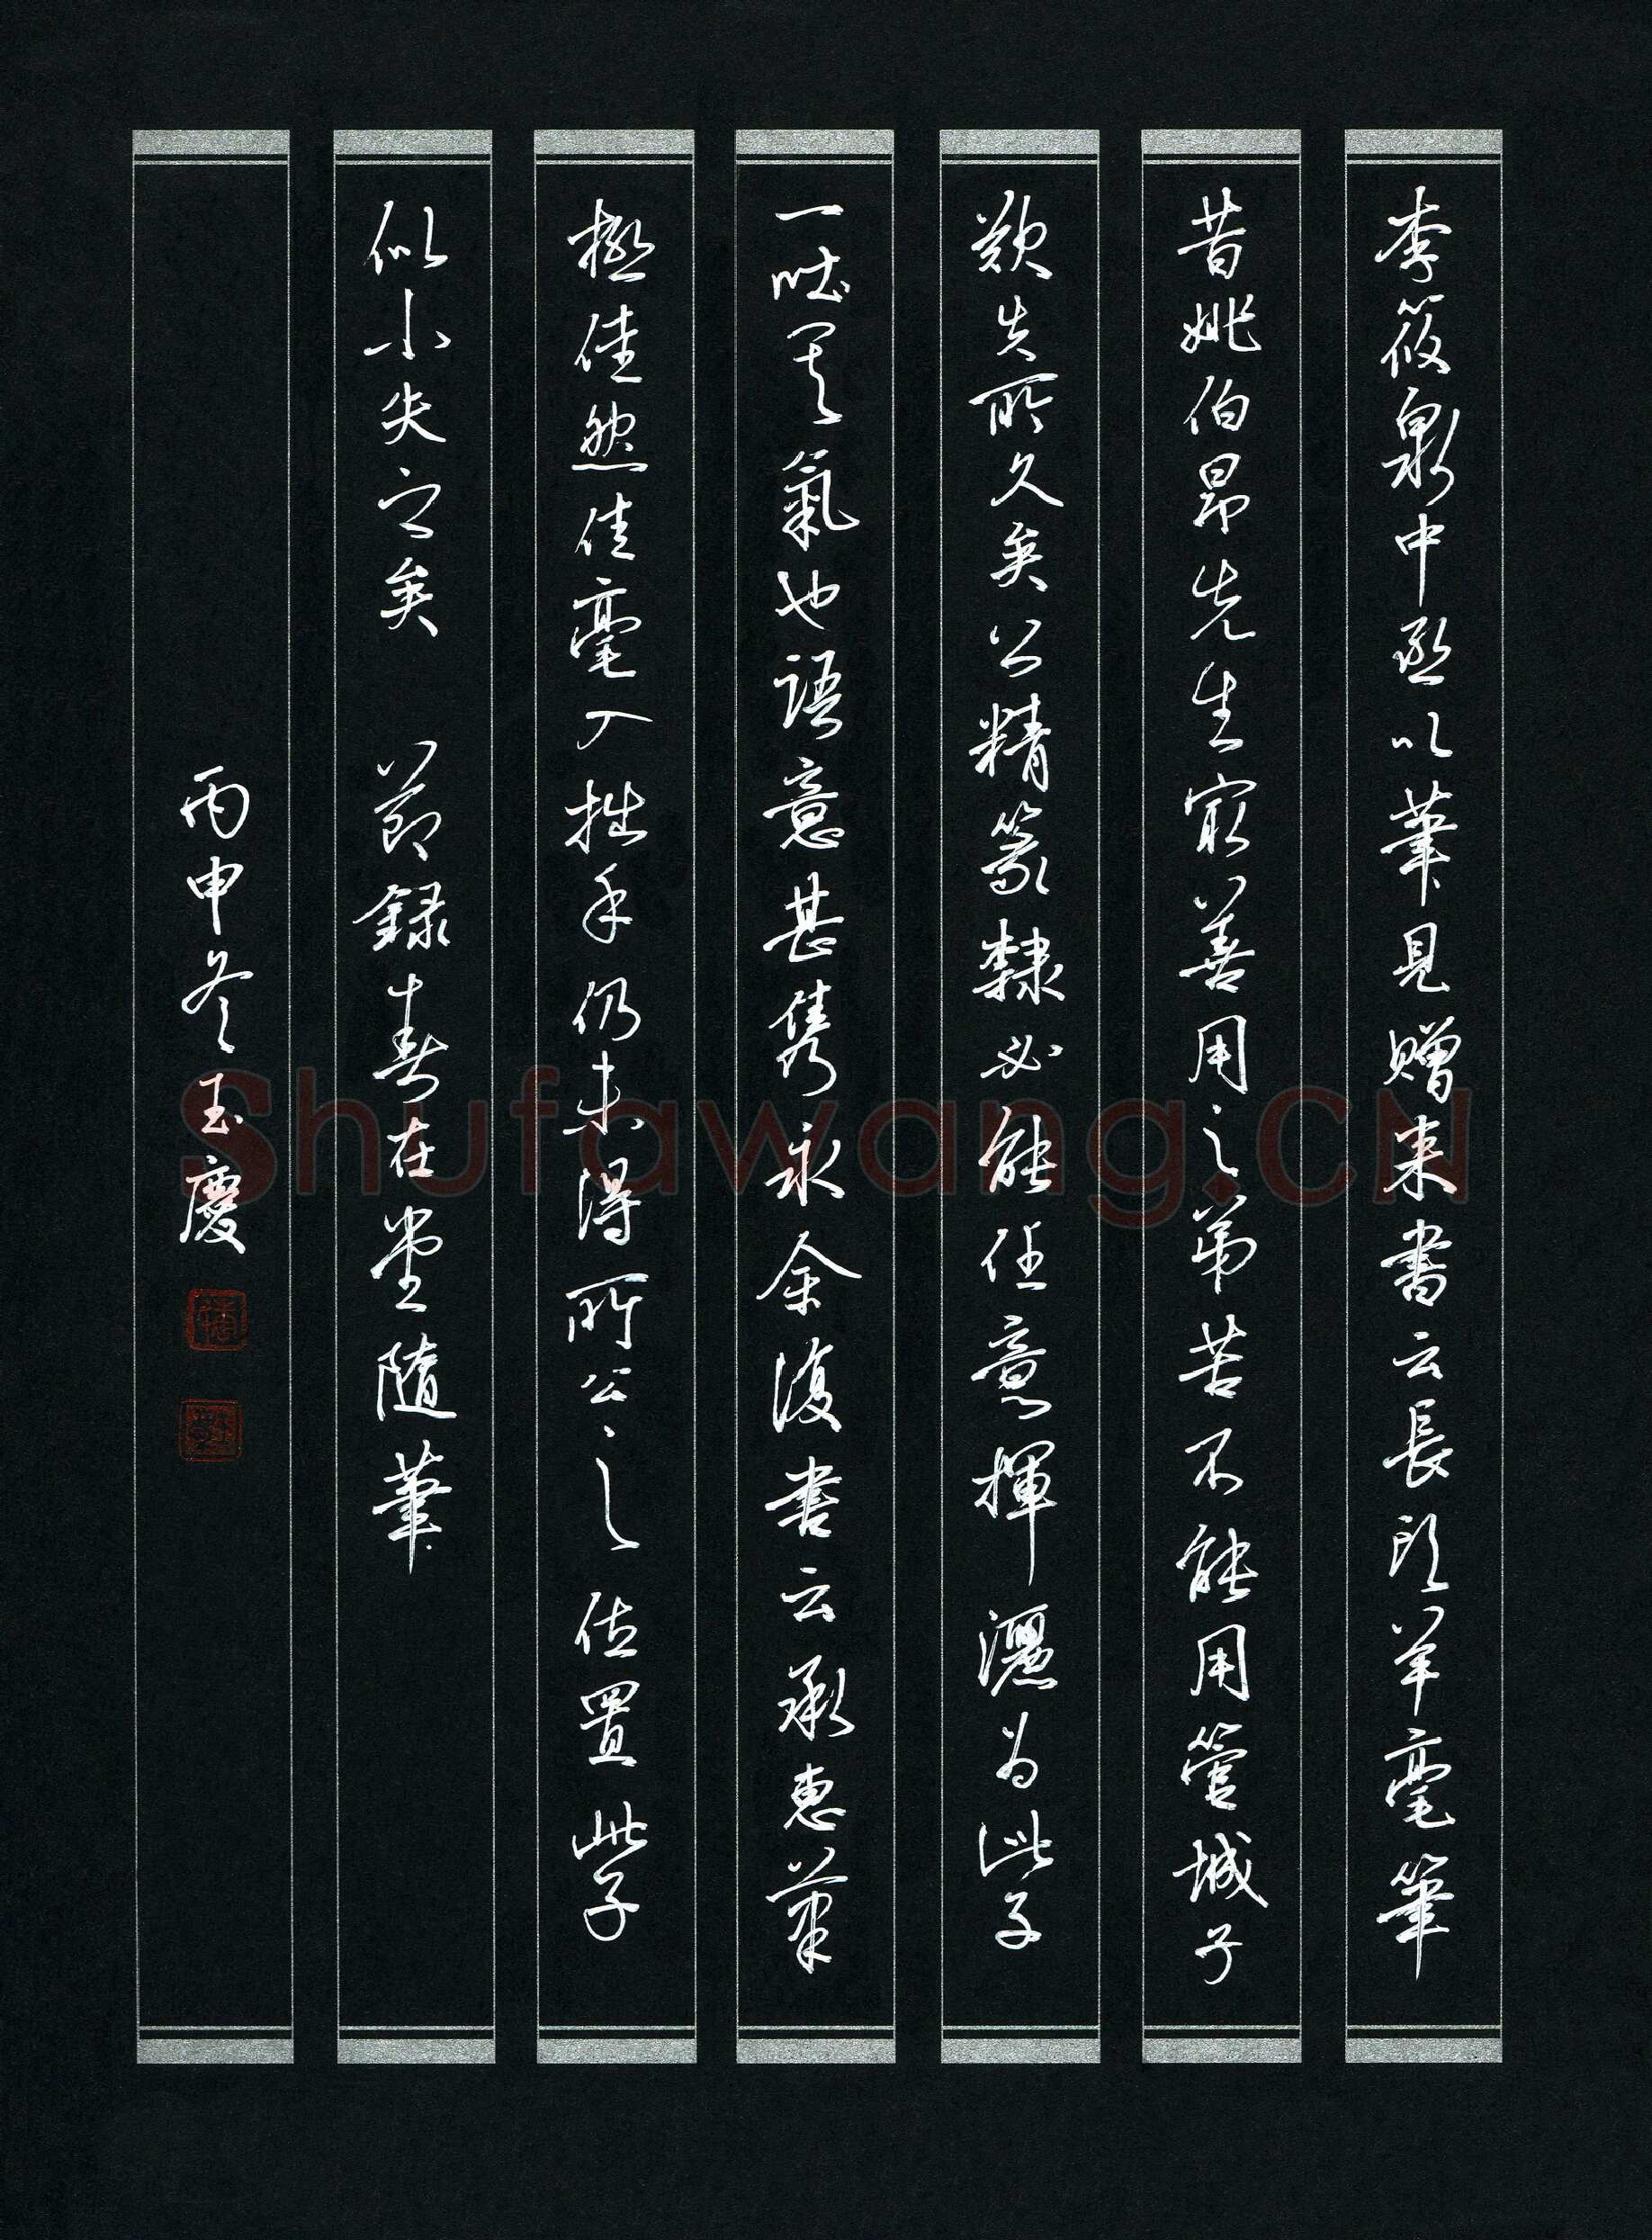 李筱泉中丞以筆見贈来書云長鋒羊毫筆
昔姚伯昂先生寂善用之弟苦不能用管城子
歎失所久矣公精篆隸必能任意揮灑为此子
一吐其氣也語意甚雋永余復書云承惠筆
極佳然佳毫入拙手仍未得所公之位置此子
似小失之矣 節録春在堂隨筆
丙申冬玉慶
Shufawang.CN